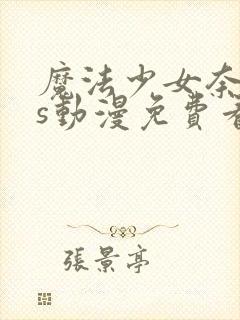 魔法少女奈
s動漫免費看
張景亭